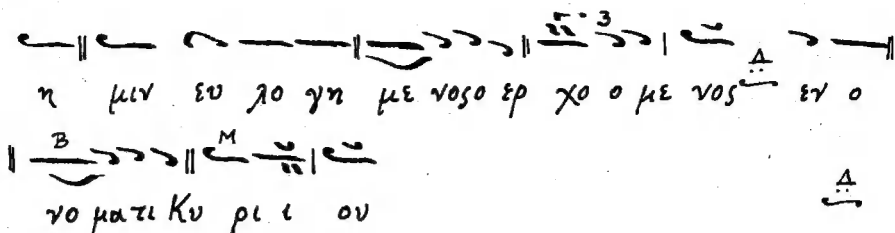 η μιν ευ λο γη με νοςο ερ χο ο με νος εν ο
νο ματι Κυ ρι ι ου